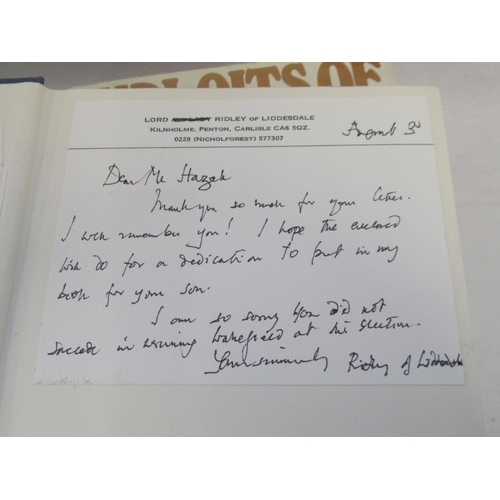 EXPLOITS OF
LORD AND LADY RIDLEY OF LIDDESDALE
KILNHOLME, PENTON, CARLISLE CA6 5QZ.
0228 (NICHOLFOREST) 577307
August 3rd
Dear Mr Hazell
Thank you so much for your letter.
I well remember you! I hope the enclosed
will do for a dedication to put in my
book for your son.
I am so sorry you did not
succeed in winning Wakefield at the election.
Yours sincerely Ridley of Liddesdale